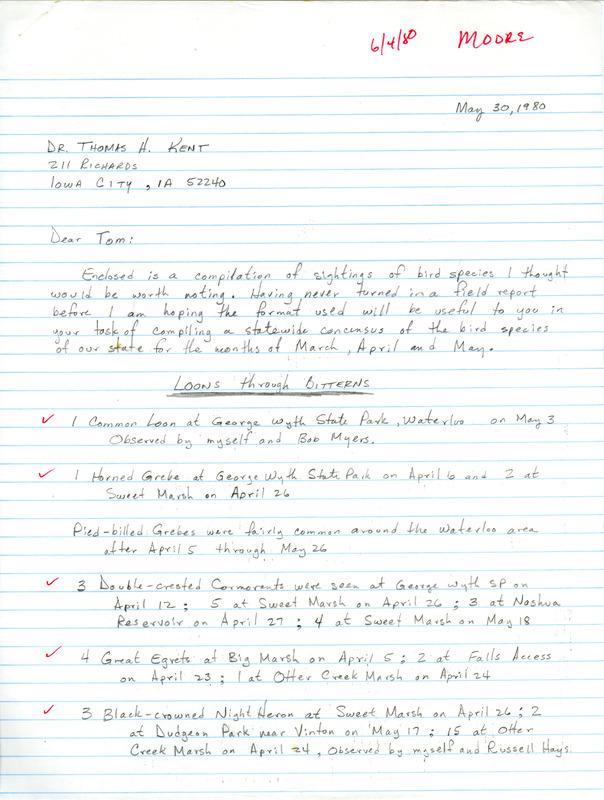 6/4/80 MOORE
May 30, 1980
DR. THOMAS H. KENT
211 RICHARDS
IOWA CITY, IA 52240
Dear Tom:
Enclosed is a compilation of sightings of bird species I thought
would be worth noting. Having never turned in a field report
before I am hoping the format used will be useful to you in
your task of compiling a statewide concensus of the bird species
of our state for the months of March, April and May.
LOONS through BITTERNS
✓ 1 Common Loon at George Wyth State Park, Waterloo on May 3
Observed by myself and Bob Myers.
✓ 1 Horned Grebe at George Wyth State Park on April 6 and 2 at
Sweet Marsh on April 26
Pied-billed Grebes were fairly common around the Waterloo area
after April 5 through May 26
✓ 3 Double-crested Cormorents were seen at George Wyth SP on
April 12; 5 at Sweet Marsh on April 26; 3 at Nashua
Reservoir on April 27; 4 at Sweet Marsh on May 18
✓ 4 Great Egrets at Big Marsh on April 5; 2 at Falls Access
on April 23; 1 at Otter Creek Marsh on April 24
✓ 3 Black-crowned Night Heron at Sweet Marsh on April 26; 2
at Dudgeon Park near Vinton on May 17; 15 at Otter
Creek Marsh on April 24, Observed by myself and Russell Hays.